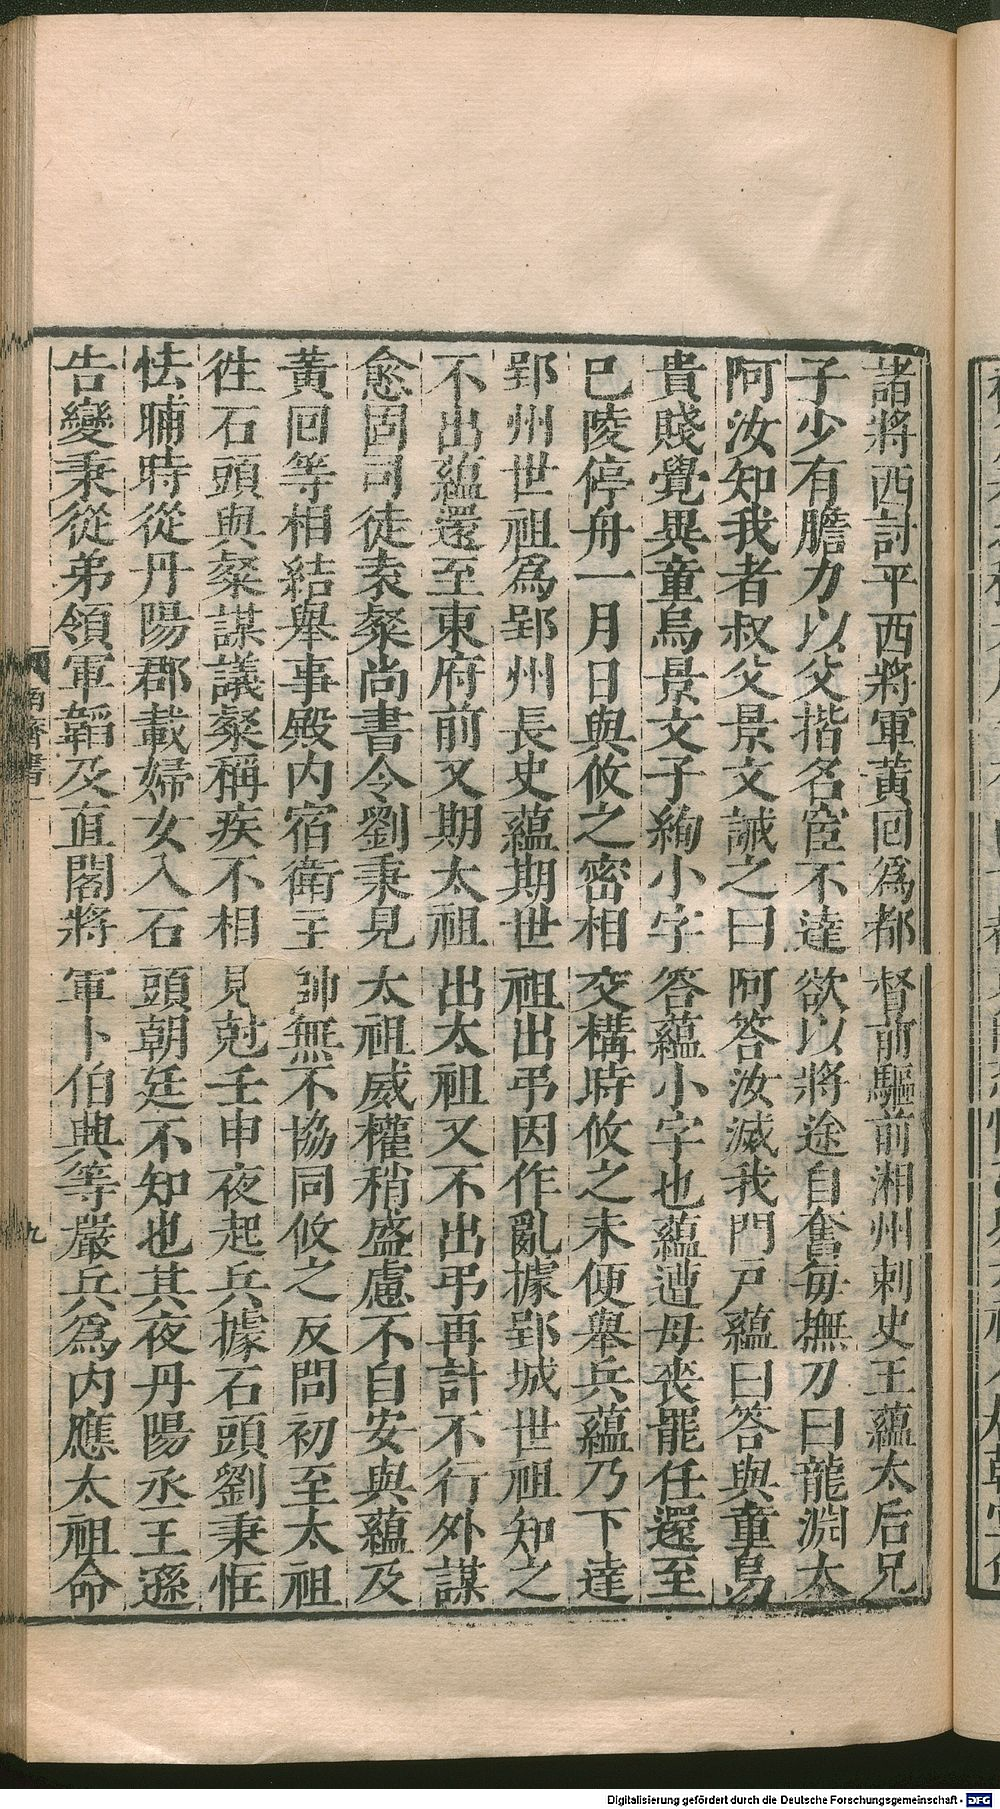 諸將西討平西將軍黃回爲都督前驅前湘州刺史王蘊太后兄
子少有膽力以父揩名宦不達欲以將途自奮每撫刀曰龍淵太
阿汝知我者叔父景文誡之曰阿答汝滅我門戶蘊曰答與童烏
貴賤覺異童烏景文子絢小字答蘊小字也蘊遭母喪罷任還至
巴陵停舟一月日與攸之密相交構時攸之未便舉兵蘊乃下達
郢州世祖爲郢州長史蘊期世祖出弔因作亂據郢城世祖知之
不出蘊還至東府前又期太祖出太祖又不出弔再計不行外謀
愈固司徒袁粲尚書令劉秉見太祖威權稍盛慮不自安與蘊及
黃回等相結舉事殿内宿衛主帥無不協同攸之反問初至太祖
徃石頭與粲謀議粲稱疾不相見尅壬申夜起兵據石頭劉秉恇
怯晡時從丹陽郡載婦女入石頭朝廷不知也其夜丹陽丞王遜
告變秉從弟領軍韞及直閣將軍卜伯興等嚴兵爲内應太祖命
南齊書一
九
Digitalisierung gefördert durch die Deutsche Forschungsgemeinschaft - DFG